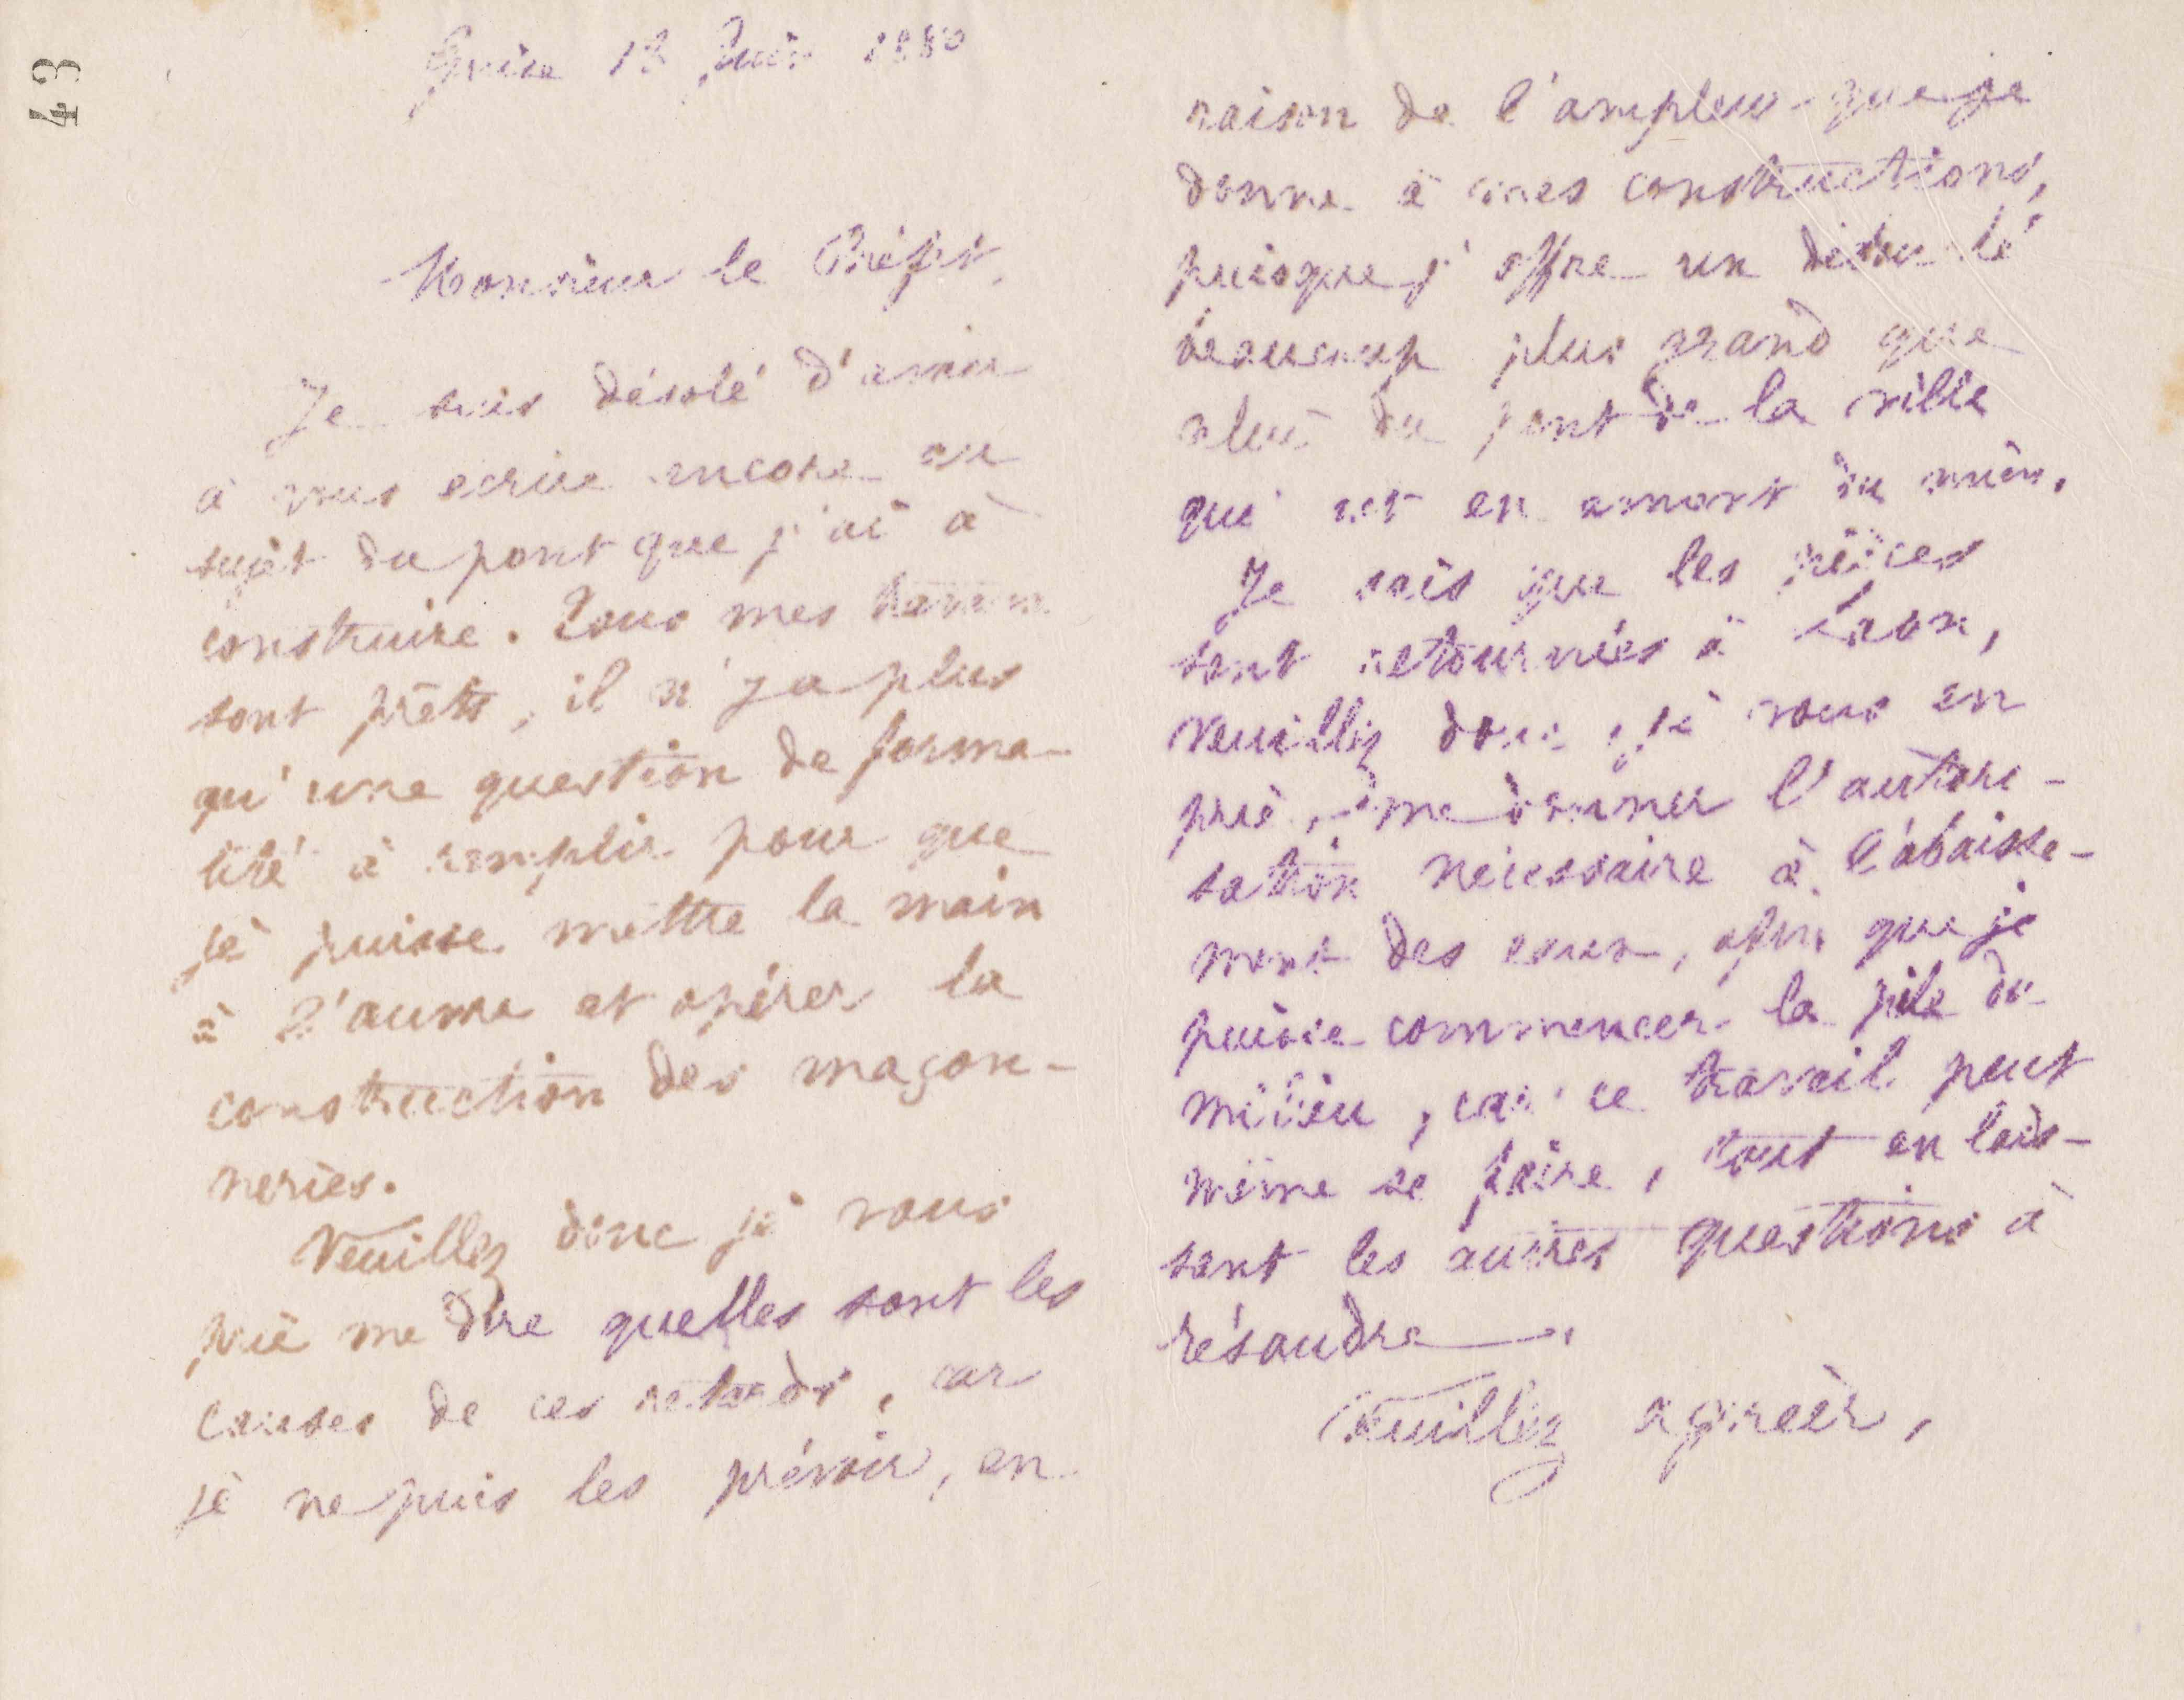 43
Guise 13 Juin 1880
Monsieur le Préfet,
Je suis désolé d'avoir
à vous ecrire encore au
sujet du pont que j'ai à
construire. Tous mes travaux
sont prêts, il n'y a plus
qu'une question de forma-
lité à remplir pour que
je puisse mettre la main
à l'œuvre et opérer la
construction des maçon-
neries.
Veuillez donc je vous
prie me dire quelles sont les
causes de ces retards, car
je ne puis les prévoir, en
raison de l'ampleur que je
donne à mes constructions,
puisque j'offre un débouché
beaucoup plus grand que
celui du pont de la ville
qui est en amont du mien.
Je sais que les pièces
sont retournées à Laon,
veuillez donc, je vous en
prie, me donner l'autori-
sation nécessaire à l'abaisse-
ment des eaux, afin que je
puisse commencer la pile du
milieu, car ce travail peut
même se faire, tout en lais-
sant les autres questions à
résoudre.
Veuillez agréer,